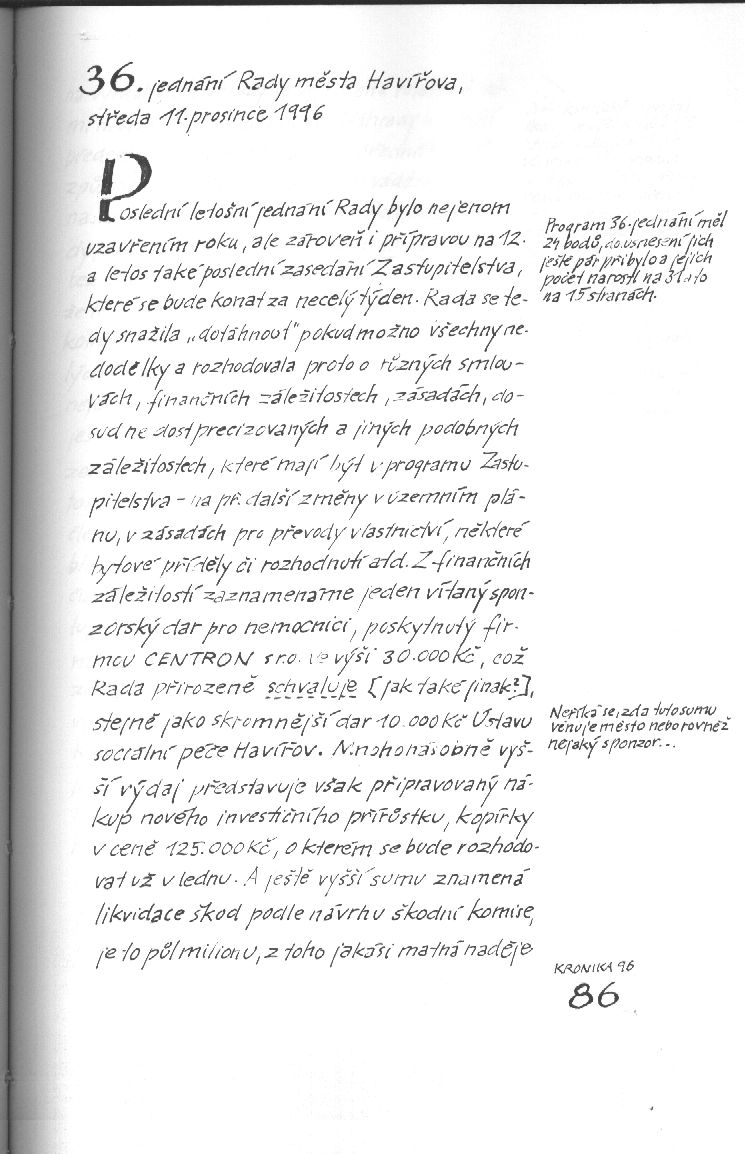 36. jednání Rady města Havířova,
středa 11. prosince 1996
Poslední letošní jednání Rady bylo nejenom
uzavřením roku, ale zároveň i přípravou na 12.
a letos také poslední zasedání Zastupitelstva,
které se bude konat za necelý týden. Rada se te-
dy snažila „dotáhnout" pokud možno všechny ne-
dodělky a rozhodovala proto o různých smlou-
vách, finančních záležitostech, zásadách, do-
sud ne dost precizovaných a jiných podobných
záležitostech, které mají být v programu Zastu-
pitelstva - na př. další změny v územním plá-
nu, v zásadách pro převody vlastnictví, některé
bytové příděly či rozhodnutí atd. Z finančních
záležitostí zaznamenáme jeden vítaný spon-
zorský dar pro nemocnici, poskytnutý fir-
mou CENTRON s.r.o. ve výši 30.000 Kč, což
Rada přirozeně schvaluje [jak také jinak?],
stejně jako skromnější dar 10.000 Kč Ústavu
sociální péče Havířov. Mnohonásobně vyš-
ší výdaj představuje však připravovaný ná-
kup nového investičního přírůstku, kopírky
v ceně 125.000 Kč, o kterém se bude rozhodo-
vat už v lednu. A ještě vyšší sumu znamená
likvidace škod podle návrhu škodní komise,
je to půl milionu, z toho jakási matná naděje
Program 36. jednání měl
24 bodů, do usnesení jich
ještě pár přibylo a jejich
počet narostl na 31 a to
na 15 stranách.
Neříká se, zda tuto sumu
věnuje město nebo rovněž
nějaký sponzor...
KRONIKA 96
86